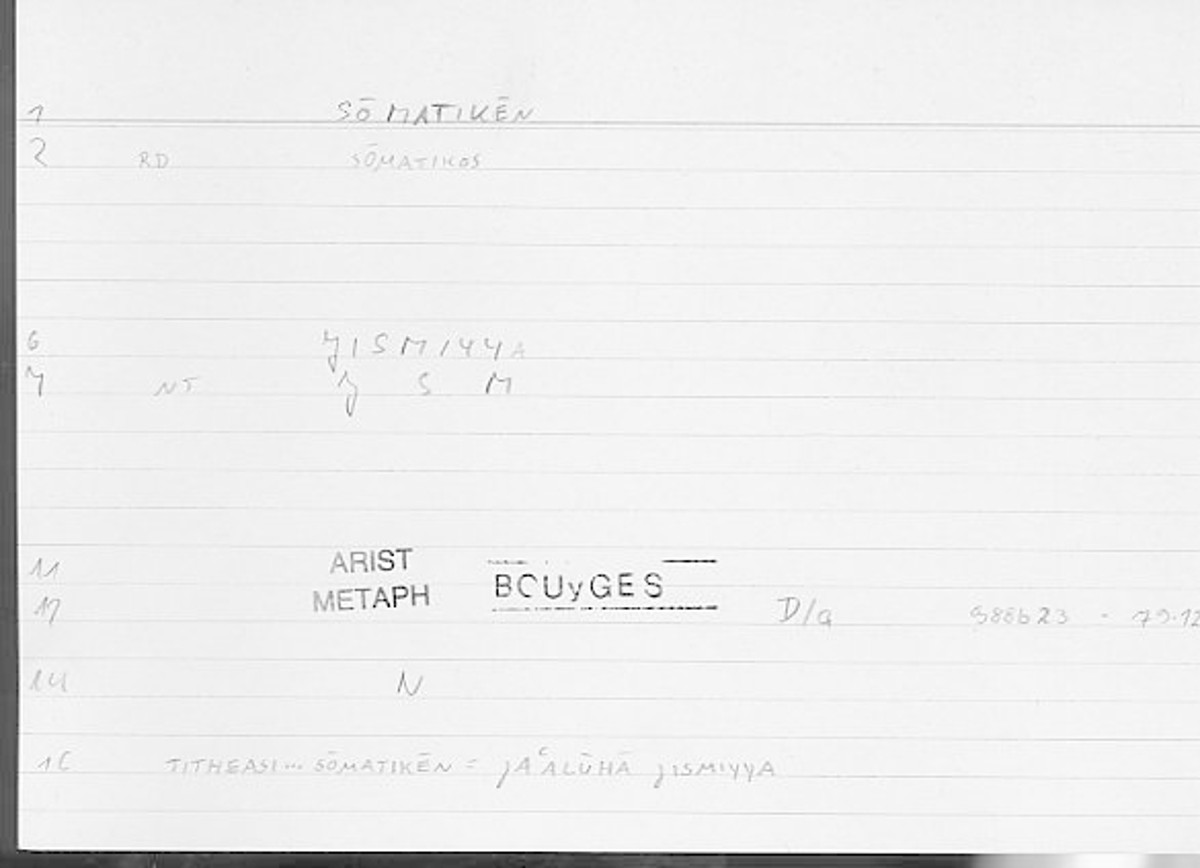 1 SŌMATIKĒN
2 RD SŌMATIKOS
6 JISMIYYA
7 NT J S M
11 ARIST
METAPH BOUyGES
12 D/a 988b23 - 79.12
14 N
16 TITHEASI... SŌMATIKĒN = JAʿALŪHĀ JISMIYYA